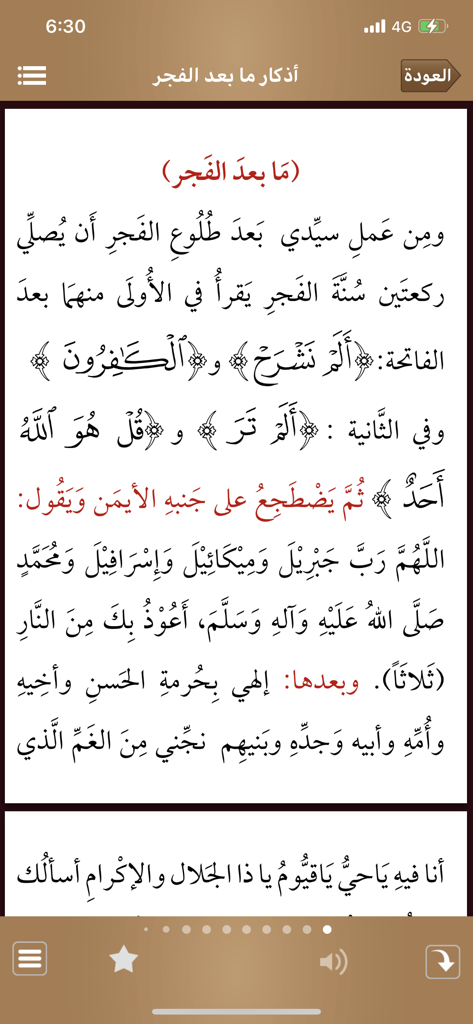 6:30
4G
أذكار ما بعد الفجر
العودة
(مَا بعدَ الفَجر)
ومِن عَملِ سيِّدي بَعدَ طُلُوعِ الفَجرِ أَن يُصلِّي
ركعتَين سُنَّةَ الفَجرِ يَقرأُ في الأُولَى منهمَا بعدَ
الفاتحة: ﴿أَلَمْ نَشْرَحْ﴾ و﴿ٱلْكَٰفِرُونَ﴾
وفي الثَّانية : ﴿أَلَمْ تَرَ﴾ و ﴿قُلْ هُوَ ٱللَّهُ
أَحَدٌ﴾ ثُمَّ يَضْطَجِعُ على جَنبهِ الأيمَن وَيَقُول:
اللَّهُمَّ رَبَّ جَبْرِيْلَ وَمِيْكَائِيْلَ وَإِسْرَافِيْلَ وَمُحَمَّدٍ
صَلَّى اللهُ عَلَيْهِ وَآلهِ وَسَلَّمَ، أَعُوْذُ بِكَ مِنَ النَّارِ
(ثَلاثَاً). وبعدها: إلهي بِحُرمةِ الحَسنِ وأخِيهِ
وأُمِّهِ وأبيه وَجدِّهِ وبَنيهِم نجِّني مِنَ الغَمِّ الَّذي
أنا فيهِ يَاحيُّ يَاقيُّومُ يا ذا الجَلال والإكْرامِ أسألُك